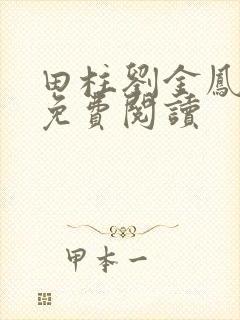 田柱劉金鳳
免費閱讀
甲本一